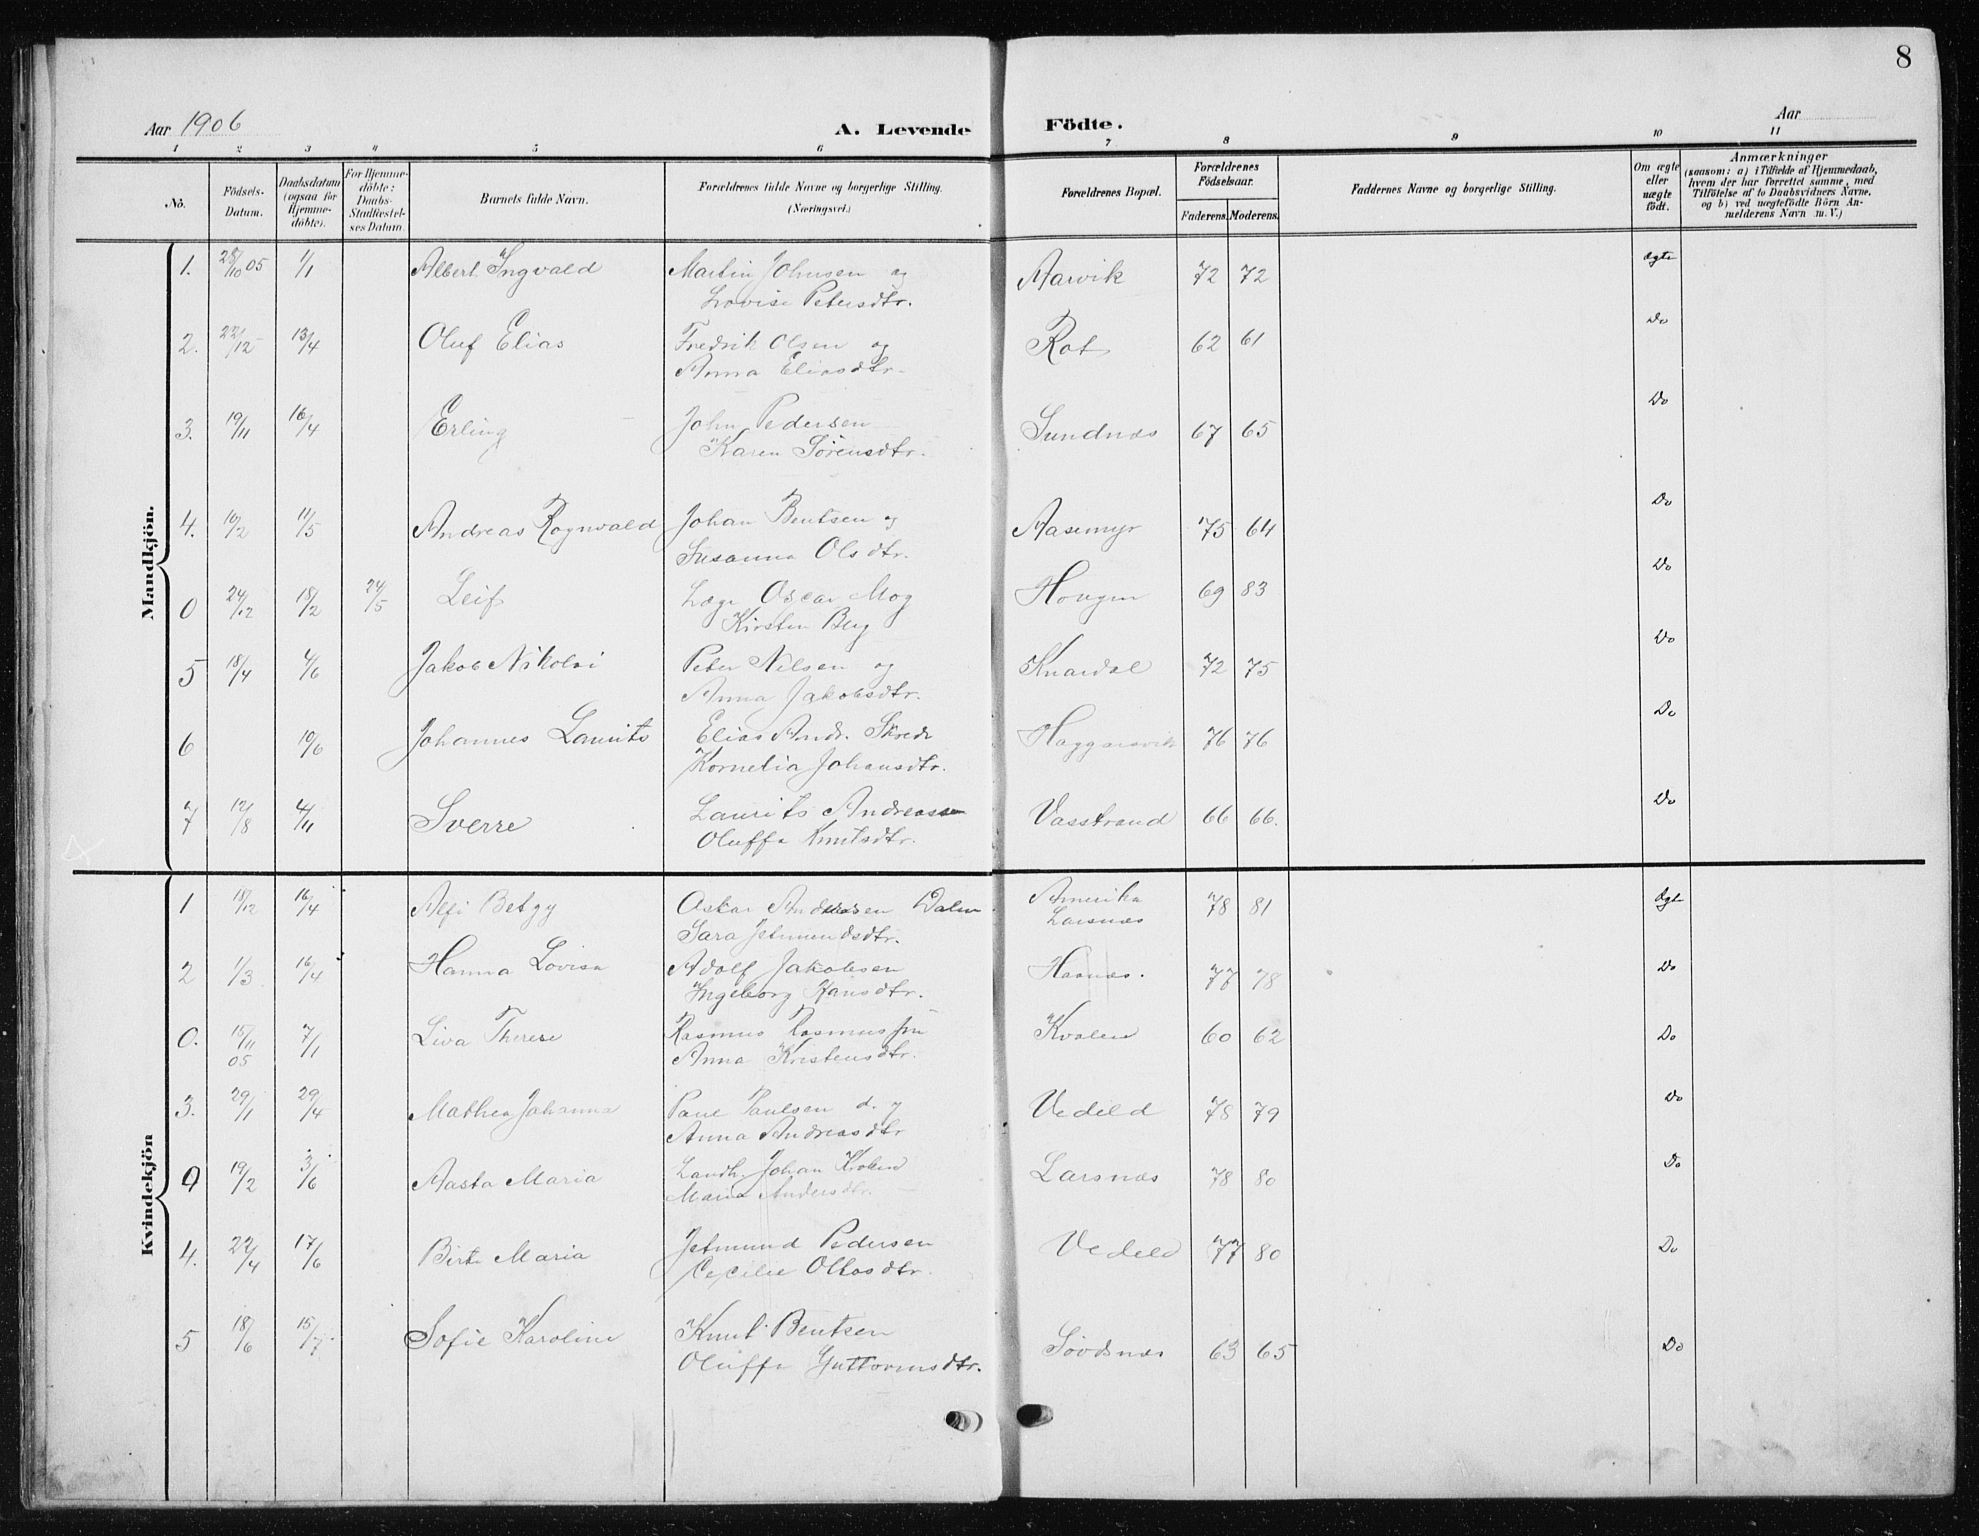 8
Aar 1906
A. Levende Födte.
Aar
1 2 3 4 5 6 7 8 9 10 11
No.
Födsels-Datum.
Daabsdatum (ogsaa for Hjemme-döbte).
For Hjemme-döbte: Daabs-Stadfæstel-ses Datum.
Barnets fulde Navn.
Forældrenes fulde Navne og borgerlige Stilling. (Næringsvei.)
Forældrenes Bopæl.
Forældrenes Födselsaar.
Faderens. Moderens.
Faddernes Navne og borgerlige Stilling.
Om ægte eller uægte födt.
Anmærkninger
(saasom: a) i Tilfælde af Hjemmedaab, hvem der har forrettet samme, med Tilföielse af to Daabsvidners Navne, og b) ved uægtefödte Börn An-melderens Navn m. V.)
Mandkjön.
1. 28/10 05 1/1 Albert Ingvald Martin Johnsen og Aarvik 72 72 ægte
Lovise Petersdtr.
2. 22/12 13/4 Oluf Elias Fredrik Olsen og Rot 62 61 Do
Anna Eliasdtr.
3. 19/11 16/4 Erling John Pedersen Sundnæs 67 65 Do
Karen Sörensdtr.
4. 10/2 11/5 Andreas Rognvald Johan Bentsen og Aasemyr 75 64 Do
Susanna Olsdtr.
0 24/12 18/2 24/5 Leif Læge Oscar Mog Hougen 69 83 Do
Kirsten Berg
5 18/4 4/6 Jakob Nikolai Peter Nilsen og Knardal 72 75 Do
Anna Jakobsdtr.
6 10/6 Johannes Laurits Elias Andr. Skrede Haggarsvik 76 76 Do
Kornelia Johansdtr.
7 12/8 4/11 Sverre Laurits Andreassen Vasstrand 66 66. Do
Oluffa Knutsdtr.
Kvindekjön
1 18/12 16/4 Alfi Betzy Oskar Andersen Dalen Amerika 78 81 Ægte
Sara Jetmundsdtr. Larsnæs
2 1/3 16/4 Hanna Lovise Adolf Jakobsen 77 78 Do
Ingeborg Hansdtr.
0. 15/11 05 7/1 Liva Therese Rasmus Rasmussen Kvalen 60 62 Do
Anna Kristensdtr.
3. 29/1 29/4 Mathea Johanna Paul Paulsen d. y Vedeld 78 79 Do
Anna Andreasdtr
0 19/2 3/6 Aasta Maria Landh. Johan Larsnæs 78 80 Do
Maria Andersdtr.
4. 22/4 17/6 Birte Maria Jetmund Pedersen Vedeld 77 80 Do
Cecilie Ottosdtr.
5 18/6 15/7 Sofie Karoline Knut Bentsen Sövdsnæs 63 65 Do
Oluffa Guttormsdtr.